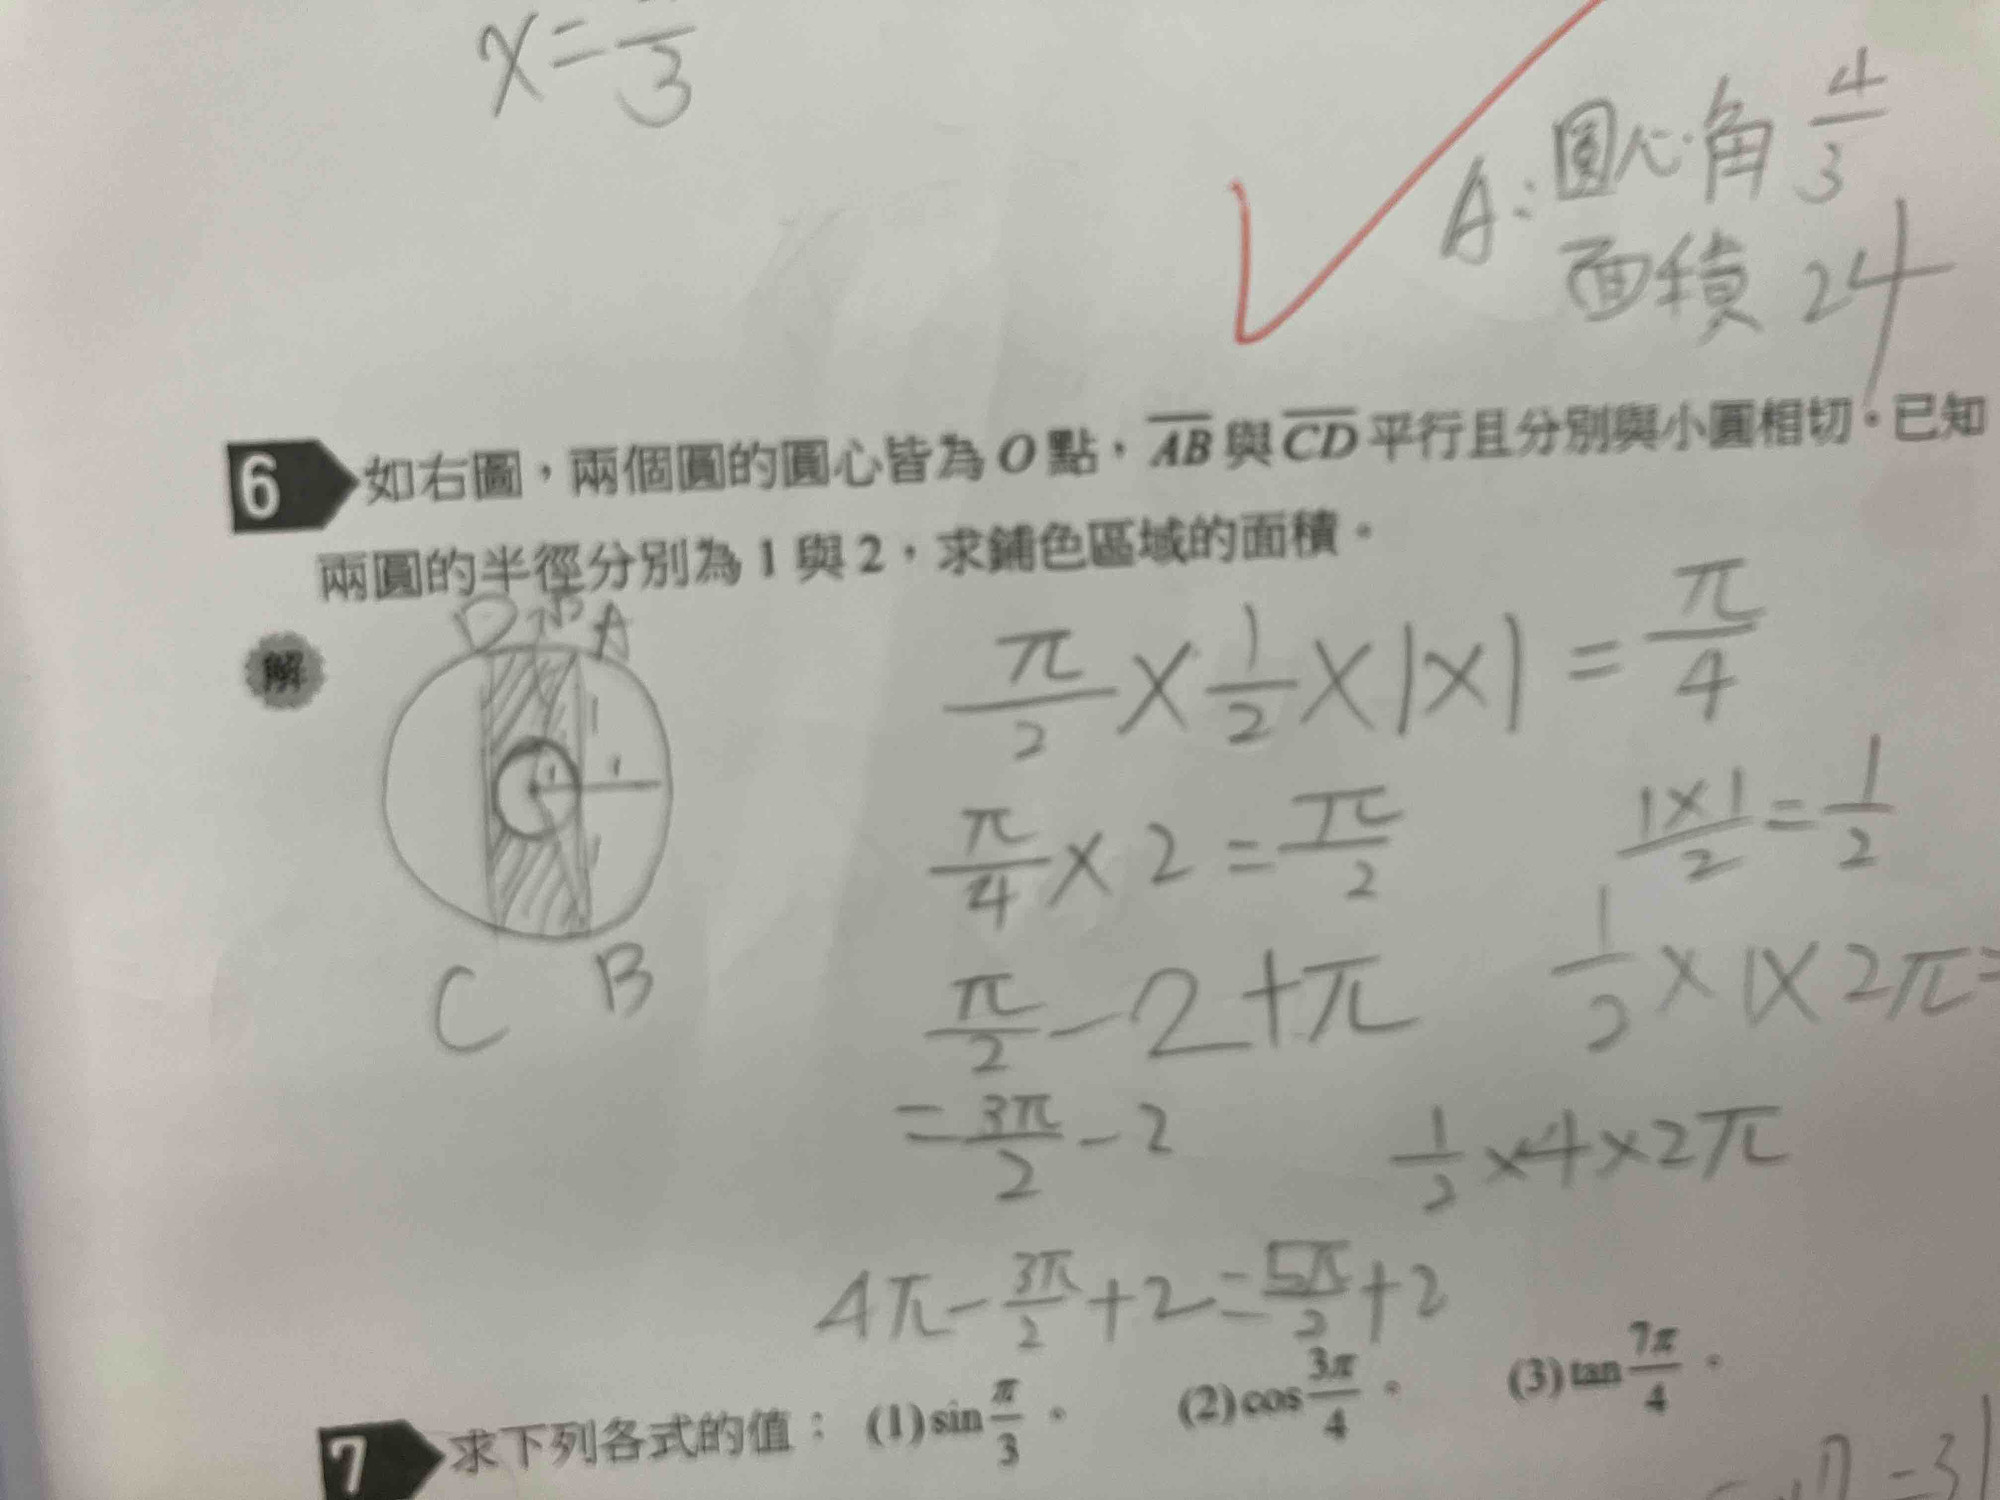 x=
3
A:圓心角 4/3
面積 24
6 如右圖,兩個圓的圓心皆為 O 點,AB 與 CD 平行且分別與小圓相切。已知
兩圓的半徑分別為 1 與 2,求鋪色區域的面積。
解
D A
π/2 × 1/2 × 1 × 1 = π/4
1 1
1
π/4 × 2 = π/2
1×1/2 = 1/2
1
C B
π/2 - 2 + π
1/2 × 1 × 2π =
= 3π/2 - 2
1/2 × 4 × 2π
4π - 3π/2 + 2 = 5π/2 + 2
7 求下列各式的值: (1) sin π/3 。 (2) cos 3π/4 。 (3) tan 7π/4 。